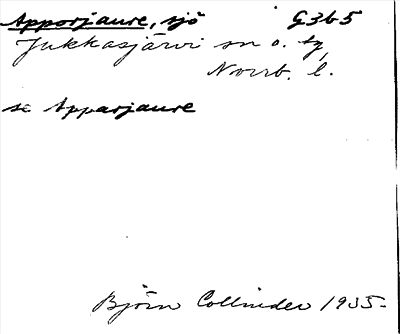 Apporjaure, sjö G3b5
Jukkasjärvi sn o. tg,
Norrb. l.
se Apparjaure
Björn Collinder 1935.